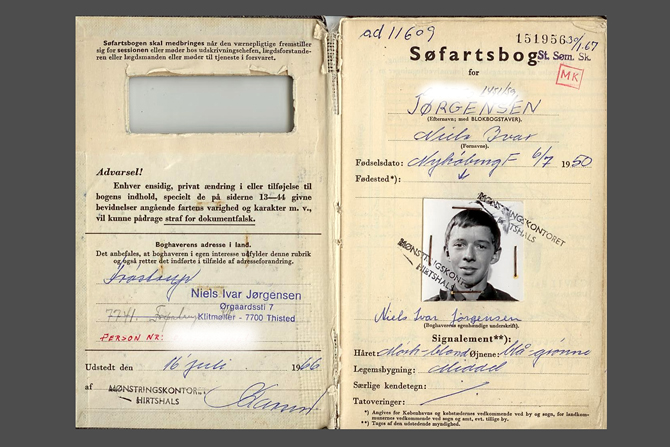 Søfartsbogen skal medbringes når den værnepligtige fremstiller
sig for sessionen eller møder hos udskrivningschefen, lægdsforstande-
ren eller lægdsmanden eller møder til tjeneste i forsvaret.
Advarsel!
Enhver ensidig, privat ændring i eller tilføjelse til
bogens indhold, specielt de på siderne 13—44 givne
bevidnelser angående fartens varighed og karakter m. v.,
vil kunne pådrage straf for dokumentfalsk.
Boghaverens adresse i land.
Det anbefales, at boghaveren i egen interesse udfylder denne rubrik
og også retter det indførte i tilfælde af adresseforandring.
Frøstrup
7741.
Niels Ivar Jørgensen
Ørgaardssti 7
Klitmøller - 7700 Thisted
PERSON NR:
Udstedt den 16 juli 1966
af MØNSTRINGSKONTORET
HIRTSHALS
ad 11609
1519563
Søfartsbog
St. Søm. Sk.
MK
for
JØRGENSEN
(Efternavn; med BLOKBOGSTAVER).
Niels Ivar
(Fornavne).
Fødselsdato: Nykøbing F 6/7 1950
Fødested*):
MØNSTRINGSKONTORET
HIRTSHALS
MØNSTRINGSKONTORET
HIRTSHALS
Niels Ivar Jørgensen
(Boghaverens egenhændige underskrift).
Signalement**):
Håret: Mørk-blond Øjnene: blå grønne
Legemsbygning: Middel
Særlige kendetegn:
Tatoveringer:
*) Angives for Københavns og købstædernes vedkommende ved by og sogn, for landkom-
munernes vedkommende ved sogn og amt, evt. tillige by.
**) Tages af den udstedende myndighed.